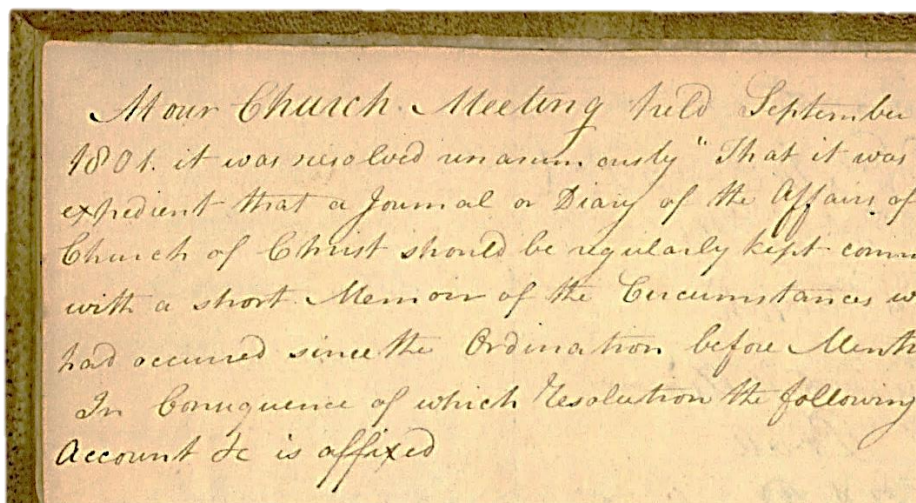 At our Church Meeting held September
1801. it was resolved unanimously "That it was
expedient that a Journal or Diary of the Affairs of
Church of Christ should be regularly kept comm
with a short Memoir of the Circumstances w
had occured since the Ordination before Menti
In Consequence of which Resolution the following
Account &c is affixed